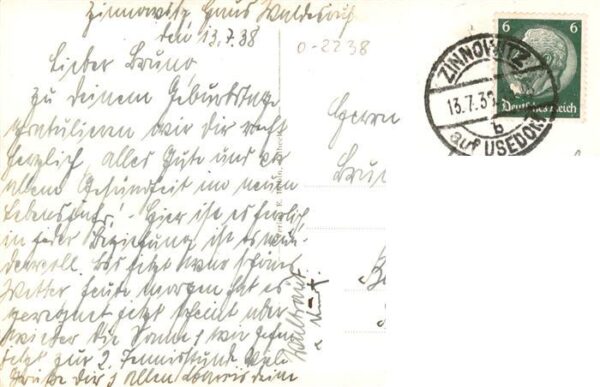 Zinnowitz, Haus Waldesruh
den 13.7.38
Lieber Bruno
Zu deinem Geburtstage
gratulieren wir dir recht
herzlich, alles Gute und vor
allem Gesundheit im neuen
Lebensjahr! Hier ist es herrlich,
in jeder Beziehung ist es wun-
dervoll. Bis jetzt war schönes
Wetter heute morgen hat es
geregnet jetzt scheint aber
wieder die Sonne & wir gehen
jetzt zur 2. Tennisstunde Viele
Grüße dir & allen
0-2238
Herrn
ZINNOWITZ
13.7.38
b
auf USEDOM
6 6
Deutsches Reich